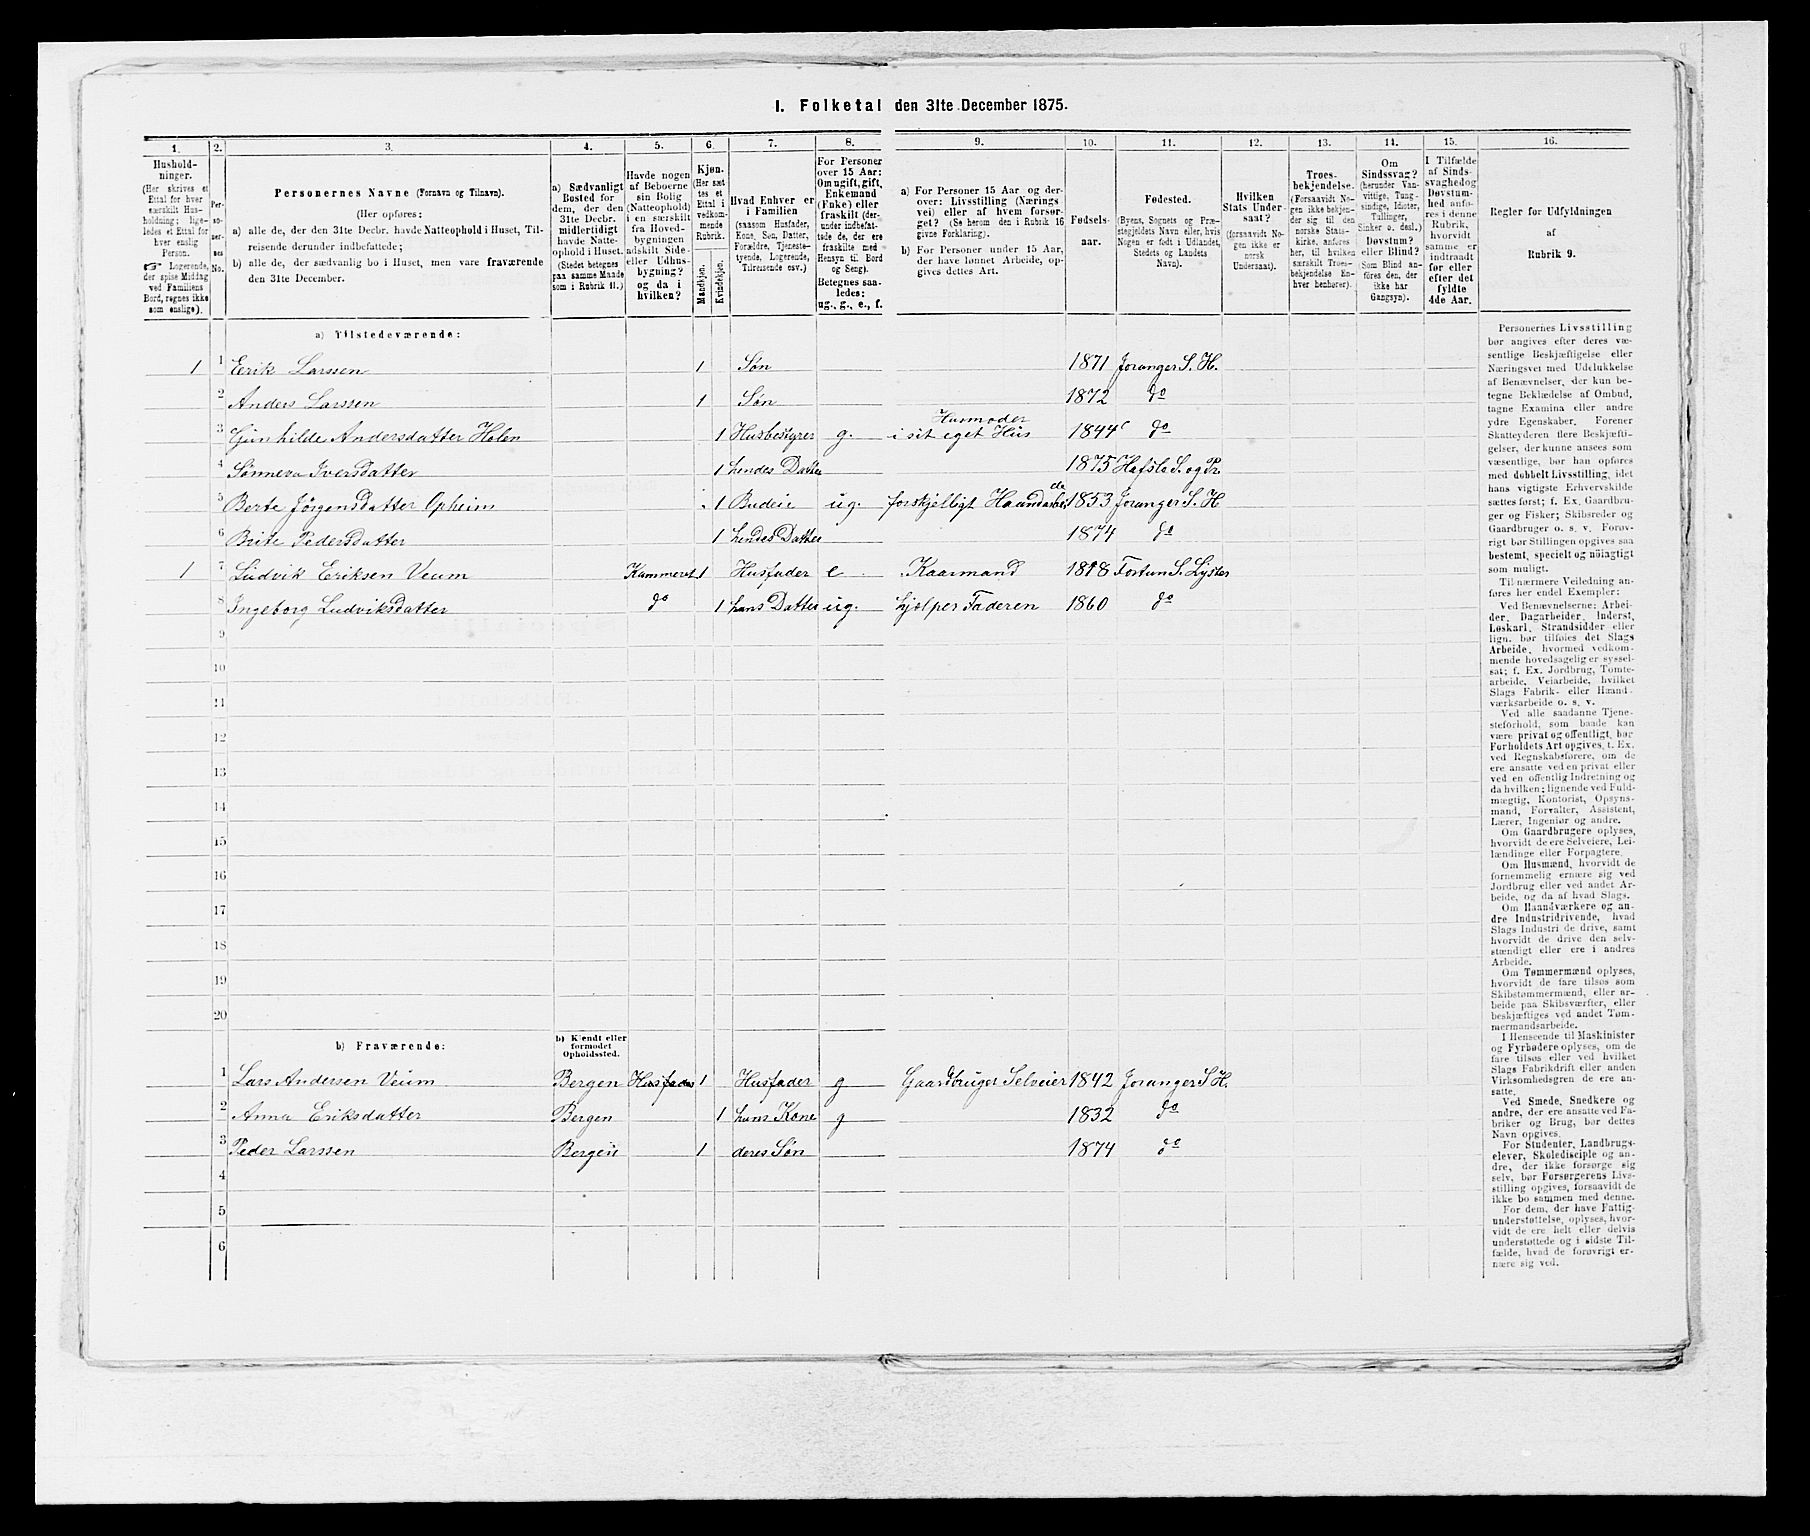 I. Folketal den 31te December 1875.
1. 2. 3. 4. 5. 6. 7. 8. 9. 10. 11. 12. 13. 14. 15. 16.
Hushold-
ninger.
(Her skrives et
Ettal for hver
særskilt Hus-
holdning; lige-
ledes et Ettal for
hver enslig
Person.
☞ Logerende,
der spise Middag
ved Familiens
Bord, regnes ikke
som enslige).
Per-
so-
ner-
nes
No.
Personernes Navne (Fornavn og Tilnavn).
(Her opføres:
a) alle de, der den 31te Decbr. havde Natteophold i Huset, Til-
reisende derunder indbefattede;
b) alle de, der sædvanlig bo i Huset, men vare fraværende
den 31te December.
a) Sædvanligt
Bosted for
dem, der den
31te Decbr.
midlertidigt
havde Natte-
ophold i Huset.
(Stedet betegnes
paa samme Maade
som i Rubrik 11.)
Havde nogen
af Beboerne
sin Bolig
(Natteophold)
i en særskilt
fra Hoved-
bygningen
adskilt Side
eller Udhus-
bygning?
og da i
hvilken?
Kjøn.
(Her sæt-
tes et
Ettal i
vedkom-
mende
Rubrik.
Mandkjøn.
Kvindekjøn.
Hvad Enhver er
i Familien
(saasom Husfader,
Kone, Søn, Datter,
Forældre, Tjeneste-
tyende, Logerende,
Tilreisende osv.)
For Personer
over 15 Aar:
Om ugift, gift,
Enkemand
(Enke) eller
fraskilt (der-
under indbefat-
tede de, der ere
fraskilte med
Hensyn til Bord
og Seng).
Betegnes saa-
ledes:
ug., g., e., f.
a) For Personer 15 Aar og der-
over: Livsstilling (Nærings-
vei) eller af hvem forsør-
get? (Se herom den i Rubrik 16
givne Forklaring).
b) For Personer under 15 Aar,
der have lønnet Arbeide, op-
gives dettes Art.
Fødsels-
aar.
Fødested.
(Byens, Sognets og Præ-
stegjeldets Navn eller, hvis
Nogen er født i Udlandet,
Stedets og Landets
Navn).
Hvilken
Stats Under-
saat?
(forsaavidt No-
gen ikke er
norsk
Undersaat).
Troes-
bekjendelse.
(Forsaavidt No-
gen ikke bekjen-
der sig til den
norske Stats-
kirke, anføres
her, til hvilken
særskilt Troes-
bekjendelse En-
hver henhører).
Om
Sindssvag?
(herunder Van-
vittige, Tung-
sindige, Idioter,
Tullinger,
Sinker o. desl.)
Døvstum?
eller Blind?
(Som Blind an-
føres den, der
ikke har
Gangsyn).
I Tilfælde
af Sinds-
svaghed og
Døvstum-
hed anfø-
res i denne
Rubrik,
hvorvidt
samme er
indtraadt
før eller
efter det
fyldte
4de Aar.
Regler for Udfyldningen
af
Rubrik 9.
a) Tilstedeværende:
1 1 Erik Larssen 1 Søn 1871 Joranger S. H.
2 Anders Larssen 1 Søn 1872 do
3 Gunhilde Andersdatter Holen 1 Husbestyrer g. Husmoder i sit eget Hus 1844 do
4 Sønneva Iversdatter 1 hendes Datter 1875 Hafslo S. og Pr.
5 Berte Jørgensdatter Opheim 1 Budeie ug. forskjelligt Haandarbeide 1853 Joranger S. H
6 Brite Pedersdatter 1 hendes Datter 1874 do
1 7 Ludvik Eriksen Veum Kammeret 1 Husfader e Kaarmand 1818 Fortun S. Lyster
8 Ingeborg Ludviksdatter do 1 hans Datter ug. hjelper Faderen 1860 do
9
10
11
12
13
14
15
16
17
18
19
20
b) Fraværende:
b) Kjendt eller
formodet
Opholdssted.
1 Lars Andersen Veum Bergen Husfader 1 Husfader g Gaardbruger Selveier 1842 Joranger S H.
2 Anna Eriksdatter Bergen 1 hans Kone g 1832 do
3 Peder Larssen Bergen 1 deres Søn 1874 do
4
5
6
Personernes Livsstilling
bør angives efter deres væ-
sentlige Beskjæftigelse eller
Næringsvei med Udelukkelse
af Benævnelser, der kun be-
tegne Beklædelse af Ombud,
tagne Examina eller andre
ydre Egenskaber. Forener
Skatteyderen flere Beskjæfti-
gelser, der kunne ansees som
væsentlige, bør han opføres
med dobbelt Livsstilling, idet
hans vigtigste Erhvervskilde
sættes først; f. Ex. Gaardbru-
ger og Fisker; Skibsreder og
Gaardbruger o. s. v. Forøv-
rigt bør Stillingen opgives saa
bestemt, specielt og nøiagtigt
som muligt.
Til nærmere Veiledning an-
føres her endel Exempler:
Ved Benævnelserne: Arbei-
der, Dagarbeider, Inderst,
Løskarl, Strandsidder eller
lign. bør tilføies det Slags
Arbeide, hvormed vedkom-
mende hovedsagelig er syssel-
sat; f. Ex. Jordbrug, Tomte-
arbeide, Veiarbeide, hvilket
Slags Fabrik- eller Haand-
værksarbeide o. s. v.
Ved alle saadanne Tjene-
steforhold, som baade kan
være privat og offentligt, bør
Forholdets Art opgives, t. Ex.
ved Regnskabsførere, om de
ere ansatte ved en privat eller
ved en offentlig Indretning og
da hvilken; lignende ved Fuld-
mægtig, Kontorist, Opsyns-
mand, Forvalter, Assistent,
Lærer, Ingeniør og andre.
Om Gaardbrugere oplyses,
hvorvidt de ere Selveiere, Lei-
lændinge eller Forpagtere.
Om Husmænd, hvorvidt de
fornemmelig ernære sig ved
Jordbrug eller ved andet Ar-
beide, og da af hvad Slags.
Om Haandværkere og an-
dre Industridrivende, hvad
Slags Industri de drive, samt
hvorvidt de drive den selv-
stændigt eller ere i andres
Arbeide.
Om Tømmermænd oplyses,
hvorvidt de fare tilsøs som
Skibstømmermænd, eller ar-
beide paa Skibsværfter, eller
beskjæftiges ved andet Tøm-
mermandsarbeide.
I Henseende til Maskinister
og Fyrbødere oplyses, om de
fare tilsøs eller ved hvilket
Slags Fabrikdrift eller anden
Virksomhedsgren de ere an-
satte.
Ved Smede, Snedkere og
andre, der ere ansatte ved Fa-
briker og Brug, bør dettes
Navn opgives.
For Studenter, Landbrugs-
elever, Skoledisciple og an-
dre, der ikke forsørge sig
selv, bør Forsørgerens Livs-
stilling opgives, forsaavidt de
ikke bo sammen med denne.
For dem, der have Fattig-
understøttelse, oplyses, hvor-
vidt de ere helt eller delvis
understøttede og i sidste Til-
fælde, hvad de forøvrigt er-
nære sig ved.